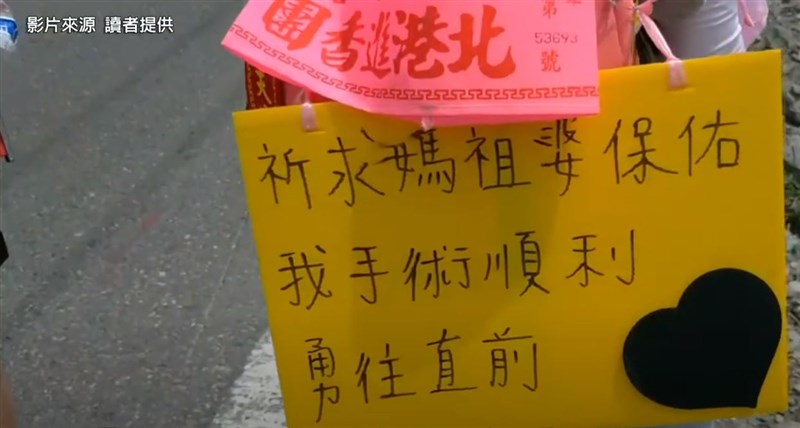 影片來源 讀者提供
團香進港北
第
53693
號
祈求媽祖婆保佑
我手術順利
勇往直前